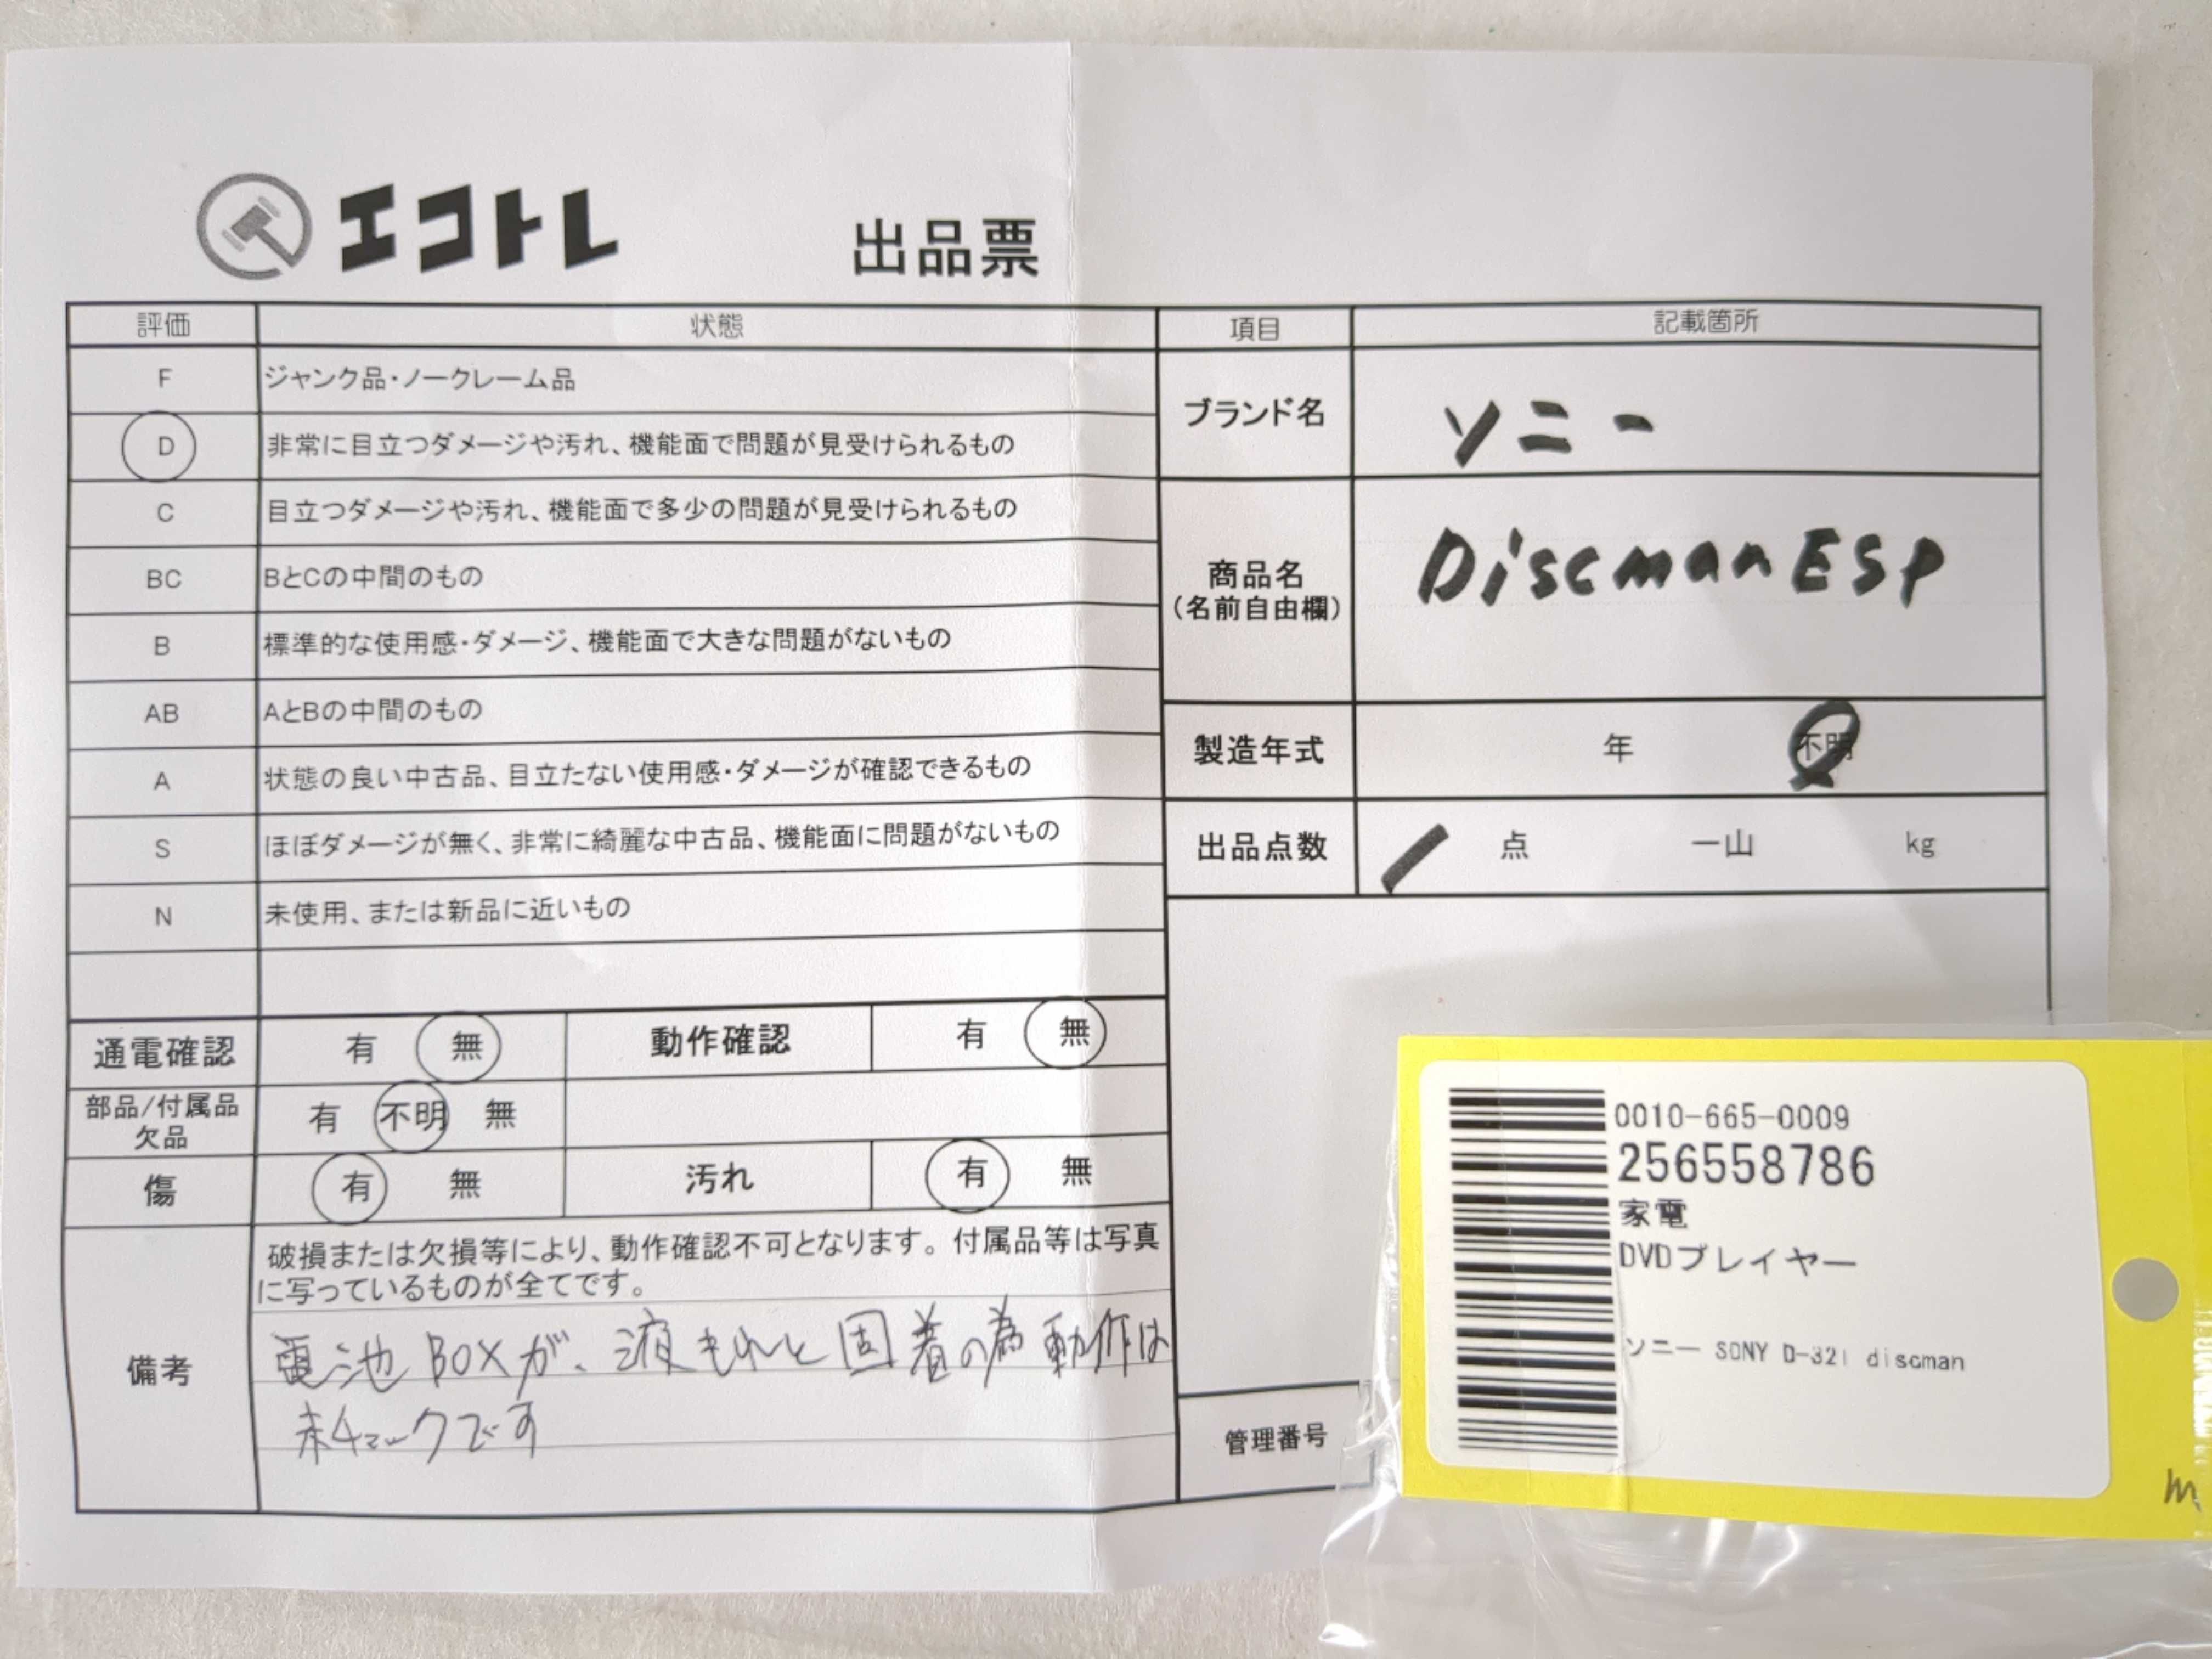 エコトレ 出品票
評価 状態 項目 記載箇所
F ジャンク品・ノークレーム品
D 非常に目立つダメージや汚れ、機能面で問題が見受けられるもの
C 目立つダメージや汚れ、機能面で多少の問題が見受けられるもの
BC BとCの中間のもの
B 標準的な使用感・ダメージ、機能面で大きな問題がないもの
AB AとBの中間のもの
A 状態の良い中古品、目立たない使用感・ダメージが確認できるもの
S ほぼダメージが無く、非常に綺麗な中古品、機能面に問題がないもの
N 未使用、または新品に近いもの
通電確認 有 無 動作確認 有 無
部品/付属品 有 不明 無
欠品
傷 有 無 汚れ 有 無
備考
破損または欠損等により、動作確認不可となります。付属品等は写真
に写っているものが全てです。
電池BOXが、液もれと固着の為動作は
未チェックです
ブランド名 ソニー
商品名
(名前自由欄)
DiscmanESP
製造年式 年 不明
出品点数 1 点 一山 kg
管理番号
0010-665-0009
256558786
家電
DVDプレイヤー
ソニー SONY D-321 discman